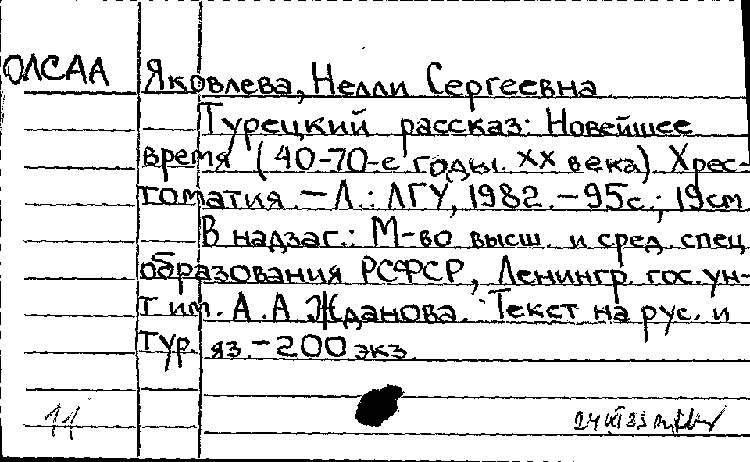 ОЛСАА Яковлева, Нелли Сергеевна
Турецкий рассказ: Новейшее
время (40-70-е годы XX века). Хрес-
томатия. — Л.: ЛГУ, 1982. — 95с.; 19см
В надзаг.: М-во высш. и сред. спец.
образования РСФСР, Ленингр. гос. ун-
т им. А.А Жданова. Текст на рус. и
тур. яз. — 200 экз.
11